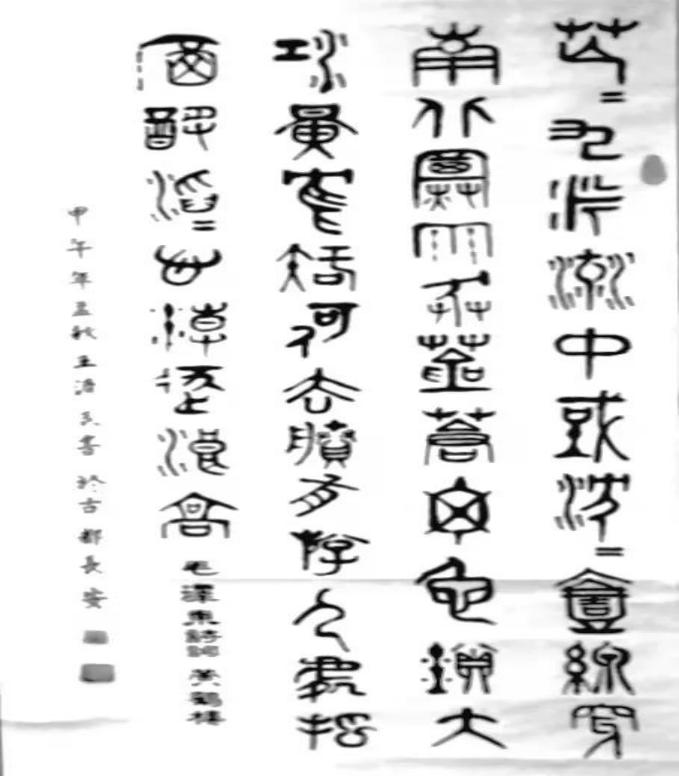 茫〓九派流中或沈〓壹線穿
南北煙雨莽蒼蒼龜它鎖大
江黃鶴知何去賸有游人處把
酒酹滔〓心潮逐浪高 毛澤東詩詞 黃鶴樓
甲午年孟秋王民書於古都長安